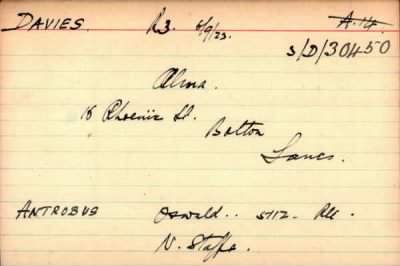 DAVIES. R3. 6/9/23. A.14.
S/D/30450
Alma.
16 Phoenix St.
Bolton
Lancs.
ANTROBUS Oswald.. 5112- Pte.
N. Staffs.